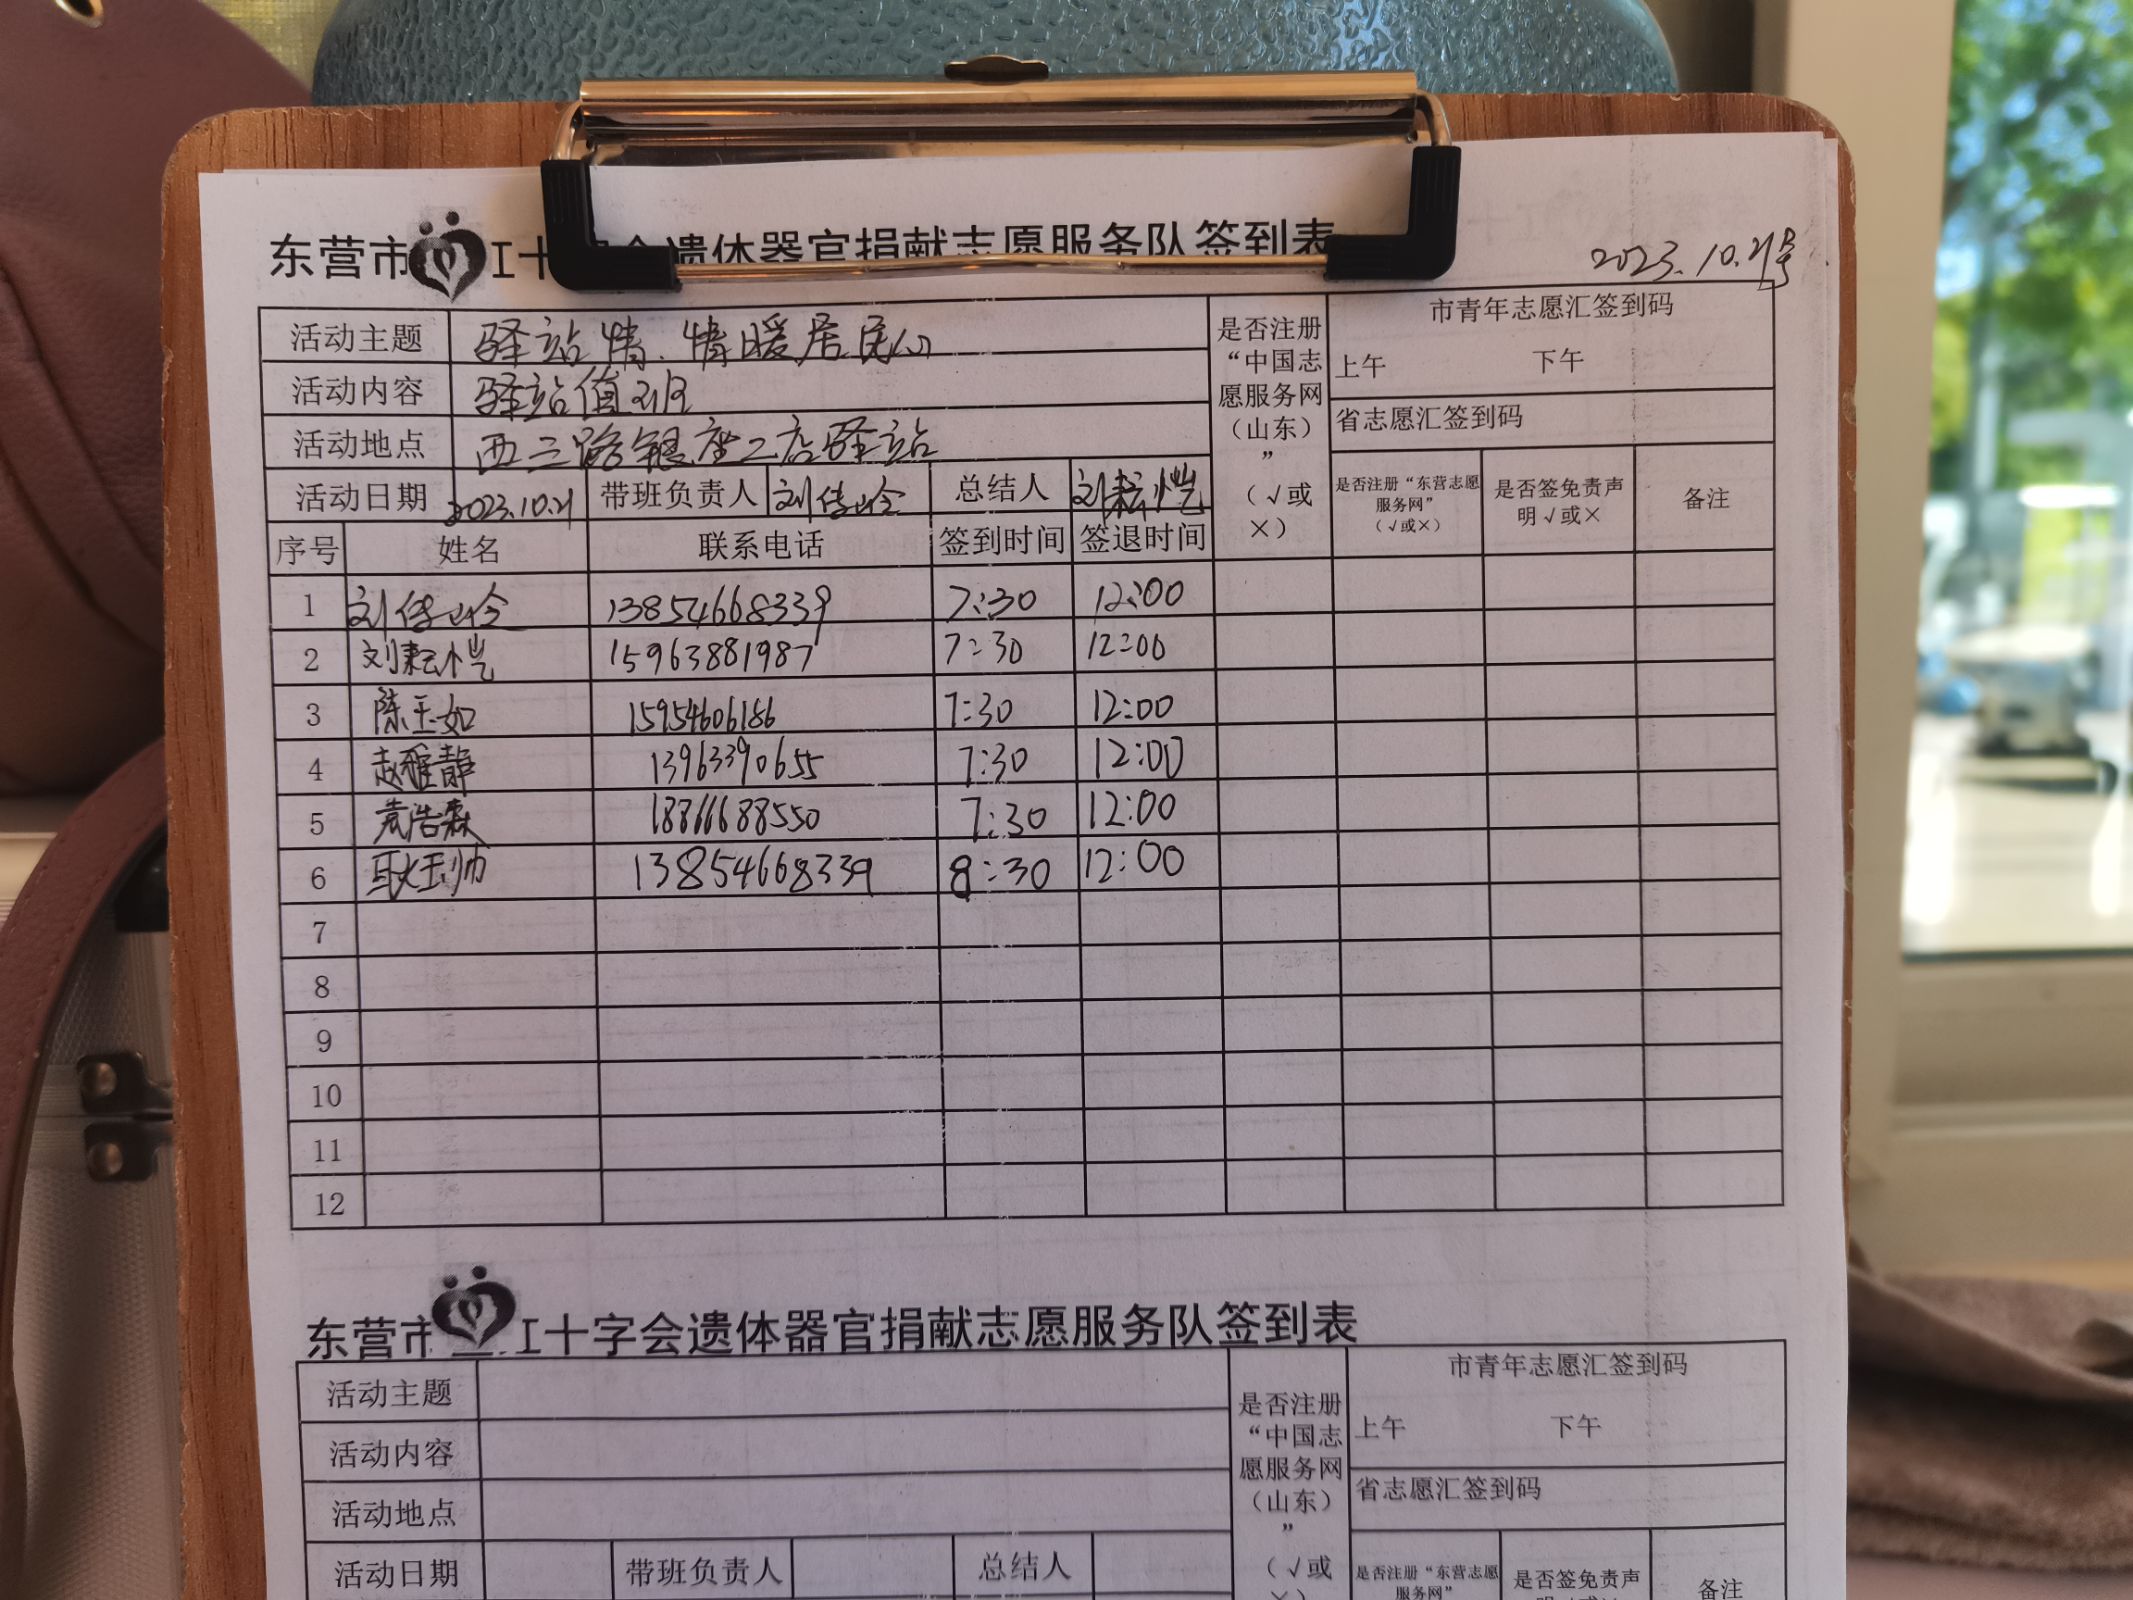 东营市红十字会遗体器官捐献志愿服务队签到表
2023.10.21号
活动主题 驿站情.情暖居民心
活动内容 驿站值班
活动地点 西三路银座二店驿站
活动日期 2023.10.21 带班负责人 刘传岭 总结人 刘耘恺
是否注册“中国志愿服务网（山东）”（√或×）
市青年志愿汇签到码
上午 下午
省志愿汇签到码
是否注册“东营志愿服务网”（√或×） 是否签免责声明√或× 备注
序号 姓名 联系电话 签到时间 签退时间
1 刘传岭 13854668339 7:30 12:00
2 刘耘恺 15963881987 7:30 12:00
3 陈玉如 15954606186 7:30 12:00
4 赵雅静 13963390655 7:30 12:00
5 浩森 18866688550 7:30 12:00
6 耿玉帅 13854668339 8:30 12:00
7
8
9
10
11
12
东营市红十字会遗体器官捐献志愿服务队签到表
活动主题
活动内容
活动地点
活动日期 带班负责人 总结人
是否注册“中国志愿服务网（山东）”（√或×）
市青年志愿汇签到码
上午 下午
省志愿汇签到码
是否注册“东营志愿服务网” 是否签免责声明√或× 备注